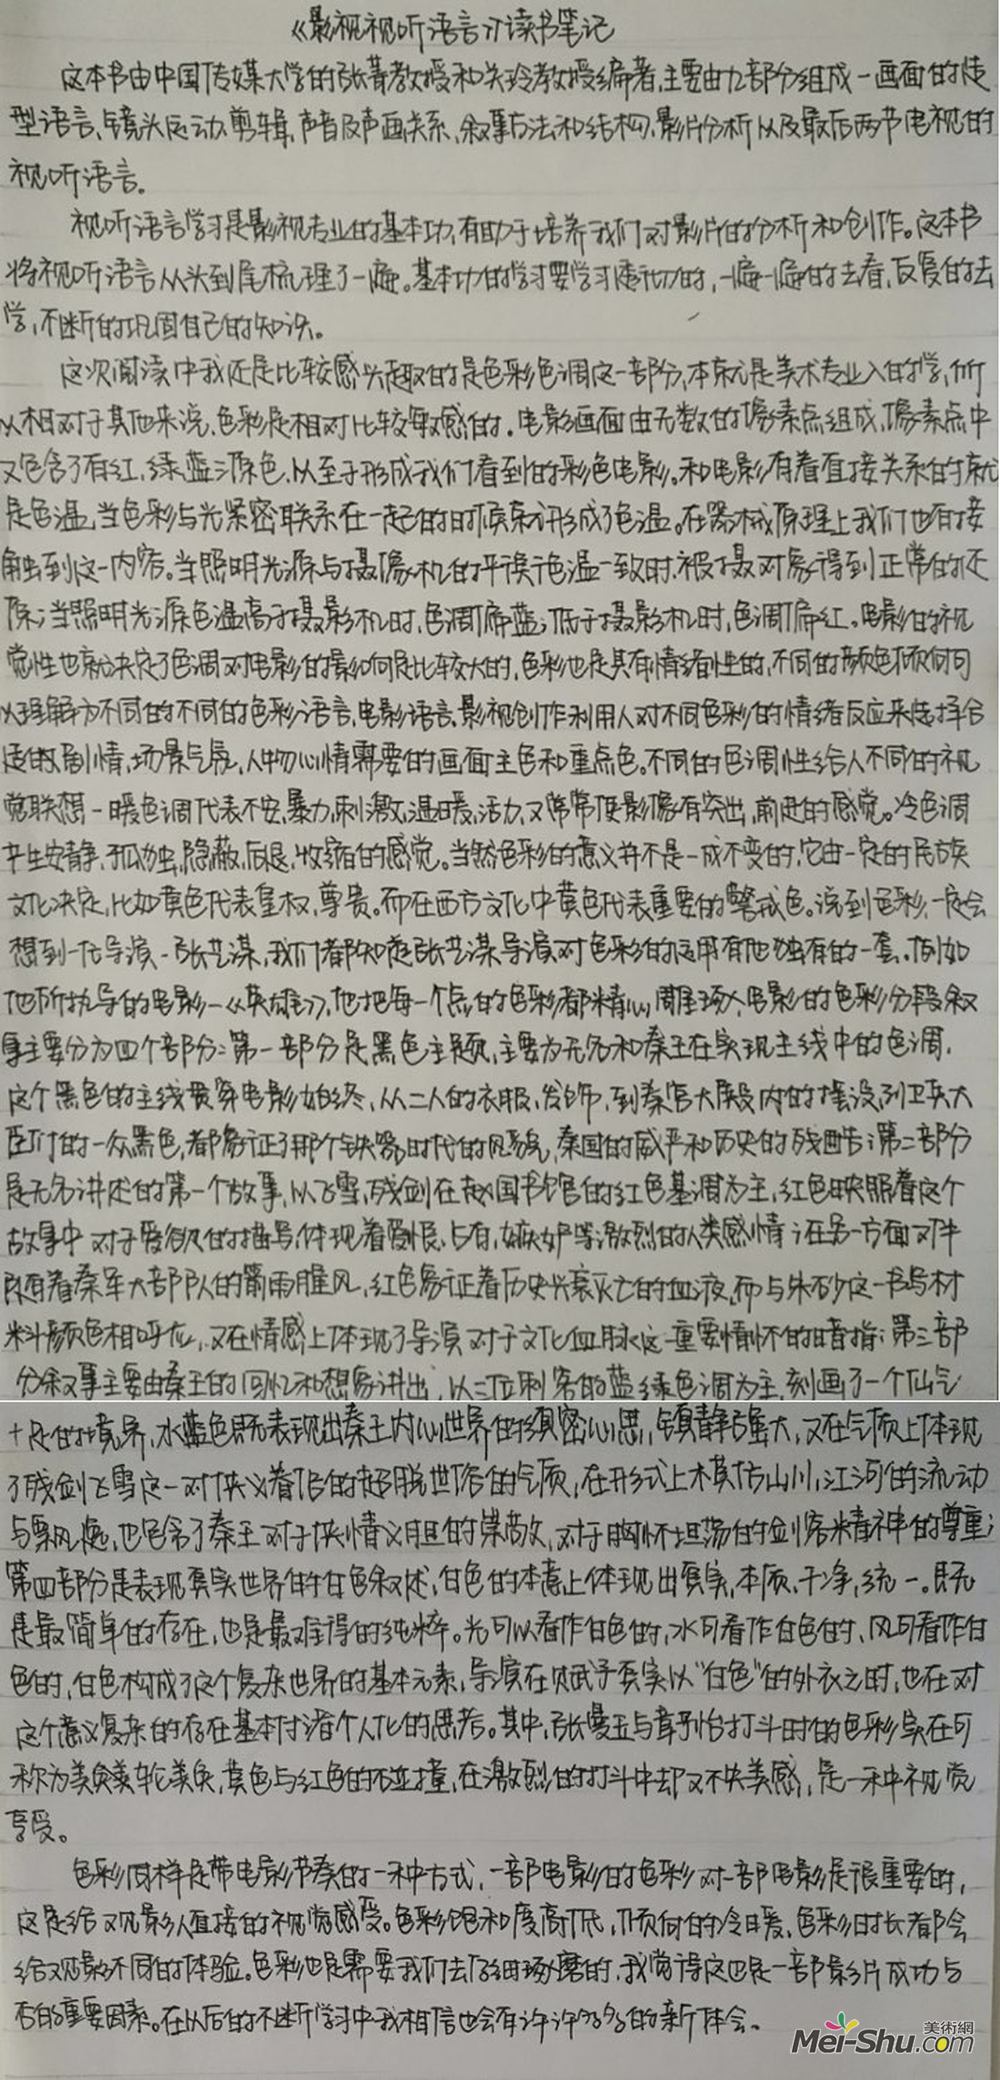 《影视视听语言》读书笔记
这本书由中国传媒大学的张菁教授和关玲教授编著,主要由九部分组成-画面的造
型语言、镜头运动、剪辑、声音及声画关系、叙事方法和结构、影片分析以及最后两节电视的
视听语言。
视听语言学习是影视专业的基本功,有助于培养我们对影片的分析和创作。这本书
将视听语言从头到尾梳理了一遍。基本功的学习要学习透彻的,一遍一遍的去看,反复的去
学,不断的巩固自己的知识。
这次阅读中我还是比较感兴趣的是色彩色调这一部分,本来就是美术专业入的学,所
以相对于其他来说,色彩是相对比较敏感的。电影画面由无数的像素点组成,像素点中
又包含了有红、绿、蓝三原色,以至于形成我们看到的彩色电影。和电影有着直接关系的就
是色温,当色彩与光紧密联系在一起的时候就形成了色温。在器械原理上我们也有接
触到这一内容。当照明光源与摄像机的平衡色温一致时,被摄对象得到正常的还
原;当照明光源色温高于摄影机时,色调偏蓝;低于摄影机时,色调偏红。电影的视
觉性也就决定了色调对电影的影响是比较大的,色彩也是具有情绪性的,不同的颜色倾向可
以理解为不同的不同的色彩语言,电影语言,影视创作利用人对不同色彩的情绪反应来选择合
适的剧情,场景气氛,人物心情需要的画面主色和重点色。不同的色调性给人不同的视
觉联想-暖色调代表不安、暴力、刺激、温暖、活力,又常常使影像有突出,前进的感觉。冷色调
产生安静、孤独、隐蔽、后退、收缩的感觉。当然色彩的意义并不是一成不变的,它由一定的民族
文化决定,比如黄色代表皇权,尊贵。而在西方文化中黄色代表重要的警戒色。说到色彩,一定会
想到一位导演-张艺谋,我们都知道张艺谋导演对色彩的运用有他独有的一套。例如
他所执导的电影-《英雄》,他把每一个点的色彩都精心周全场,电影的色彩分段叙
事主要分为四个部分:第一部分是黑色主题,主要为无名和秦王在实现主线中的色调,
这个黑色的主线贯穿电影始终,从二人的衣服,发饰,到秦宫大殿内的摆设,到卫兵大
臣们的一众黑色,都象征了那个铁器时代的风貌,秦国的威严和历史的残酷;第二部分
是无名讲述的第一个故事,以飞雪,残剑在赵国书馆的红色基调为主,红色映照着这个
故事中对于爱欲的描写,体现着爱恨,占有,嫉妒等激烈的人类感情;在另一方面对伴
随着秦军大部队的箭雨腥风,红色象征着历史兴衰灭亡的血液,而与朱砂这一书写材
料颜色相呼应,又在情感上体现了导演对于文化血脉这一重要情怀的暗指;第三部
分叙事主要由秦王的回忆和想象讲出,以三位刺客的蓝绿色调为主,刻画了一个仙气
十足的境界,水蓝色既表现出秦王内心世界的缜密心思,镇静强大,又在气质上体现
了残剑飞雪这一对侠义眷侣的超脱世俗的气质,在形式上模仿山川,江河的流动
与飘逸,也包含了秦王对于侠情义胆的崇敬,对于胸怀坦荡的剑客精神的尊重;
第四部分是表现真实世界的白色叙述,白色的本意上体现出真实,本质,干净,统一。既
是最简单的存在,也是最难得的纯粹。光可以看作白色的,水可看作白色的,风可看作白
色的,白色构成了这个复杂世界的基本元素,导演在赋予真实以“白色”的外衣之时,也在对
这个意义复杂的存在基本付诸个人化的思考。其中,张曼玉与章子怡打斗时的色彩实在可
称为美轮美奂,黄色与红色的碰撞,在激烈的打斗中却又不失美感,是一种视觉
享受。
色彩同样是带电影节奏的一种方式,一部电影的色彩对一部电影是很重要的,
这是给观影人直接的视觉感受。色彩饱和度高低,倾向的冷暖,色彩时长都会
给观影不同的体验。色彩也是需要我们去仔细琢磨的,我觉得这也是一部影片成功与
否的重要因素。在以后的不断学习中我相信也会有许许多多的新体会。
美術網
Mei-Shu.com